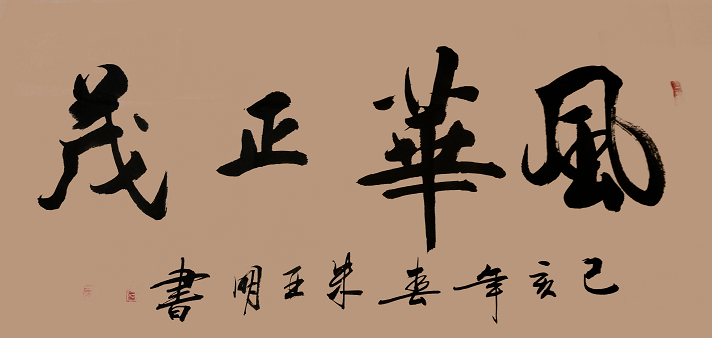 風華正茂
己亥年春朱王明書